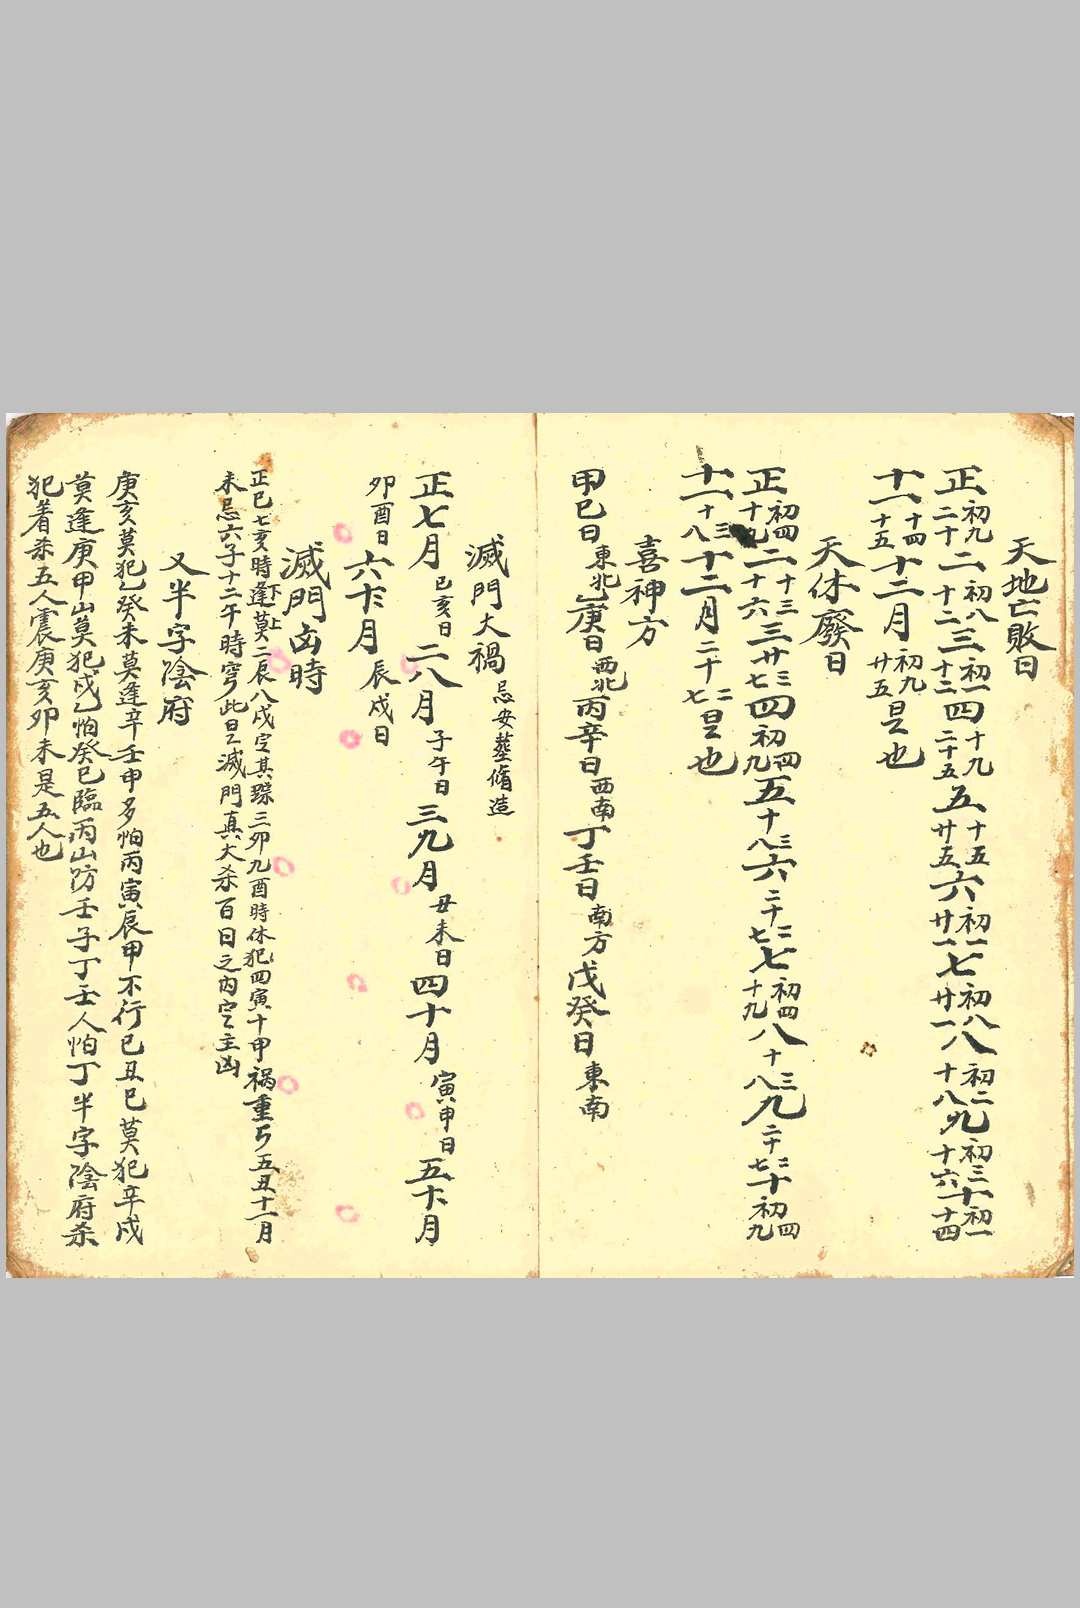 天地亡敗日
正初九二十二初八十二三初一十二四十九二十五五十五廿五六初一廿一七初八廿一八初二十八九初三十六十初一十四
十一十四十五十二月初九廿五是也
天休廢日
正初四十九二十三十六三廿三七四初四九五十三八六二十二七七初四十九八十三八九二十二七十初四九
十一十三八十二月二十二七是也
喜神方
甲己日東北乙庚日西北丙辛日西南丁壬日南方戊癸日東南
滅門大禍忌安葬脩造
正七月巳亥日二八月子午日三九月丑未日四十月寅申日五十一月
卯酉日六十二月辰戌日
滅門凶時
正巳七亥時下逢上莫二辰八戌定其蹤三卯九酉時休犯四寅十申禍重重五丑十一月
未忌六子十二午時穿此日是滅門真大杀百日之內定主凶
又半字陰府
庚亥莫犯乙癸未莫逢辛壬申多怕丙寅辰甲不行巳丑巳莫犯辛戌
莫逢庚甲山莫犯戌乙怕癸巳臨丙山防壬子丁壬人怕丁半字陰府杀
犯着杀五人震庚亥卯未是五人也